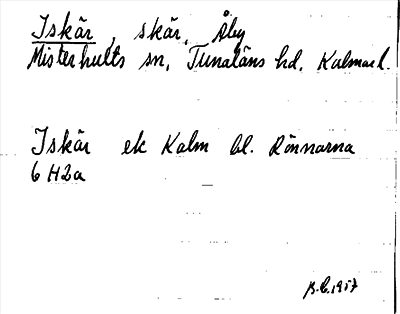 Iskär, skär, Åby
Misterhults sn, Tunaläns hd, Kalmar l.
Iskär ek Kalm bl. Rönnarna
6 H2a
B.C. 1957